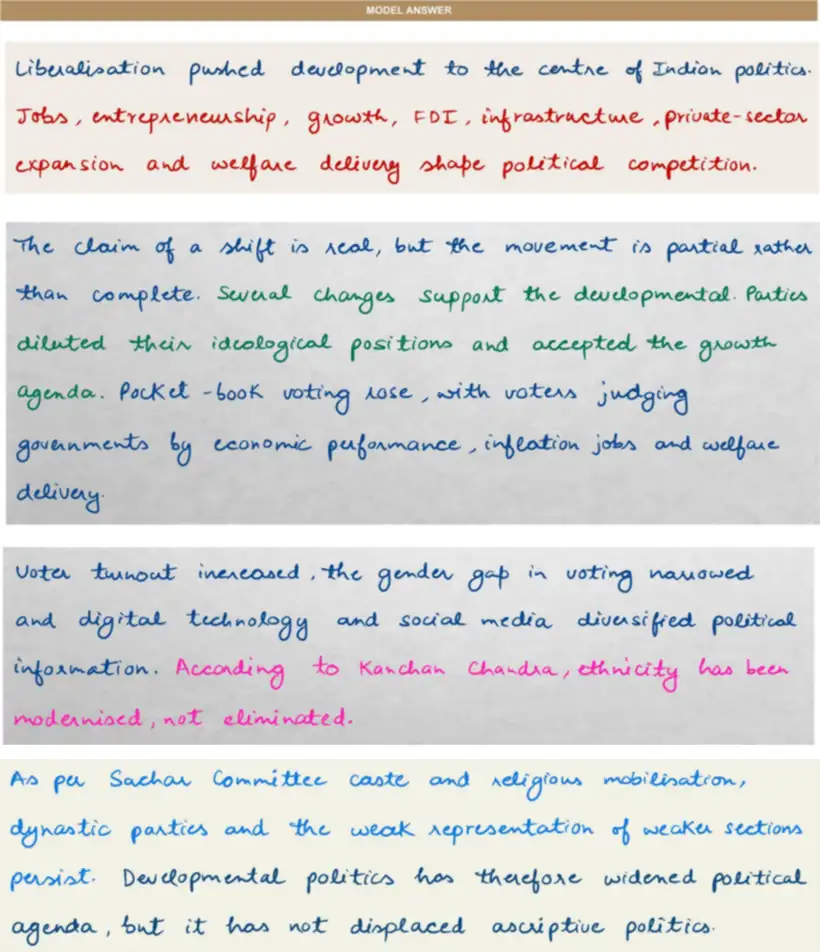 MODEL ANSWER
Liberalisation pushed development to the centre of Indian politics.
Jobs, entrepreneurship, growth, FDI, infrastructure, private-sector
expansion and welfare delivery shape political competition.
The claim of a shift is real, but the movement is partial rather
than complete. Several changes support the developmental. Parties
diluted their ideological positions and accepted the growth
agenda. Pocket-book voting rose, with voters judging
governments by economic performance, inflation jobs and welfare
delivery.
Voter turnout increased, the gender gap in voting narrowed
and digital technology and social media diversified political
information. According to Kanchan Chandra, ethnicity has been
modernised, not eliminated.
As per Sachar Committee caste and religious mobilisation,
dynastic parties and the weak representation of weaker sections
persist. Developmental politics has therefore widened political
agenda, but it has not displaced ascriptive politics.